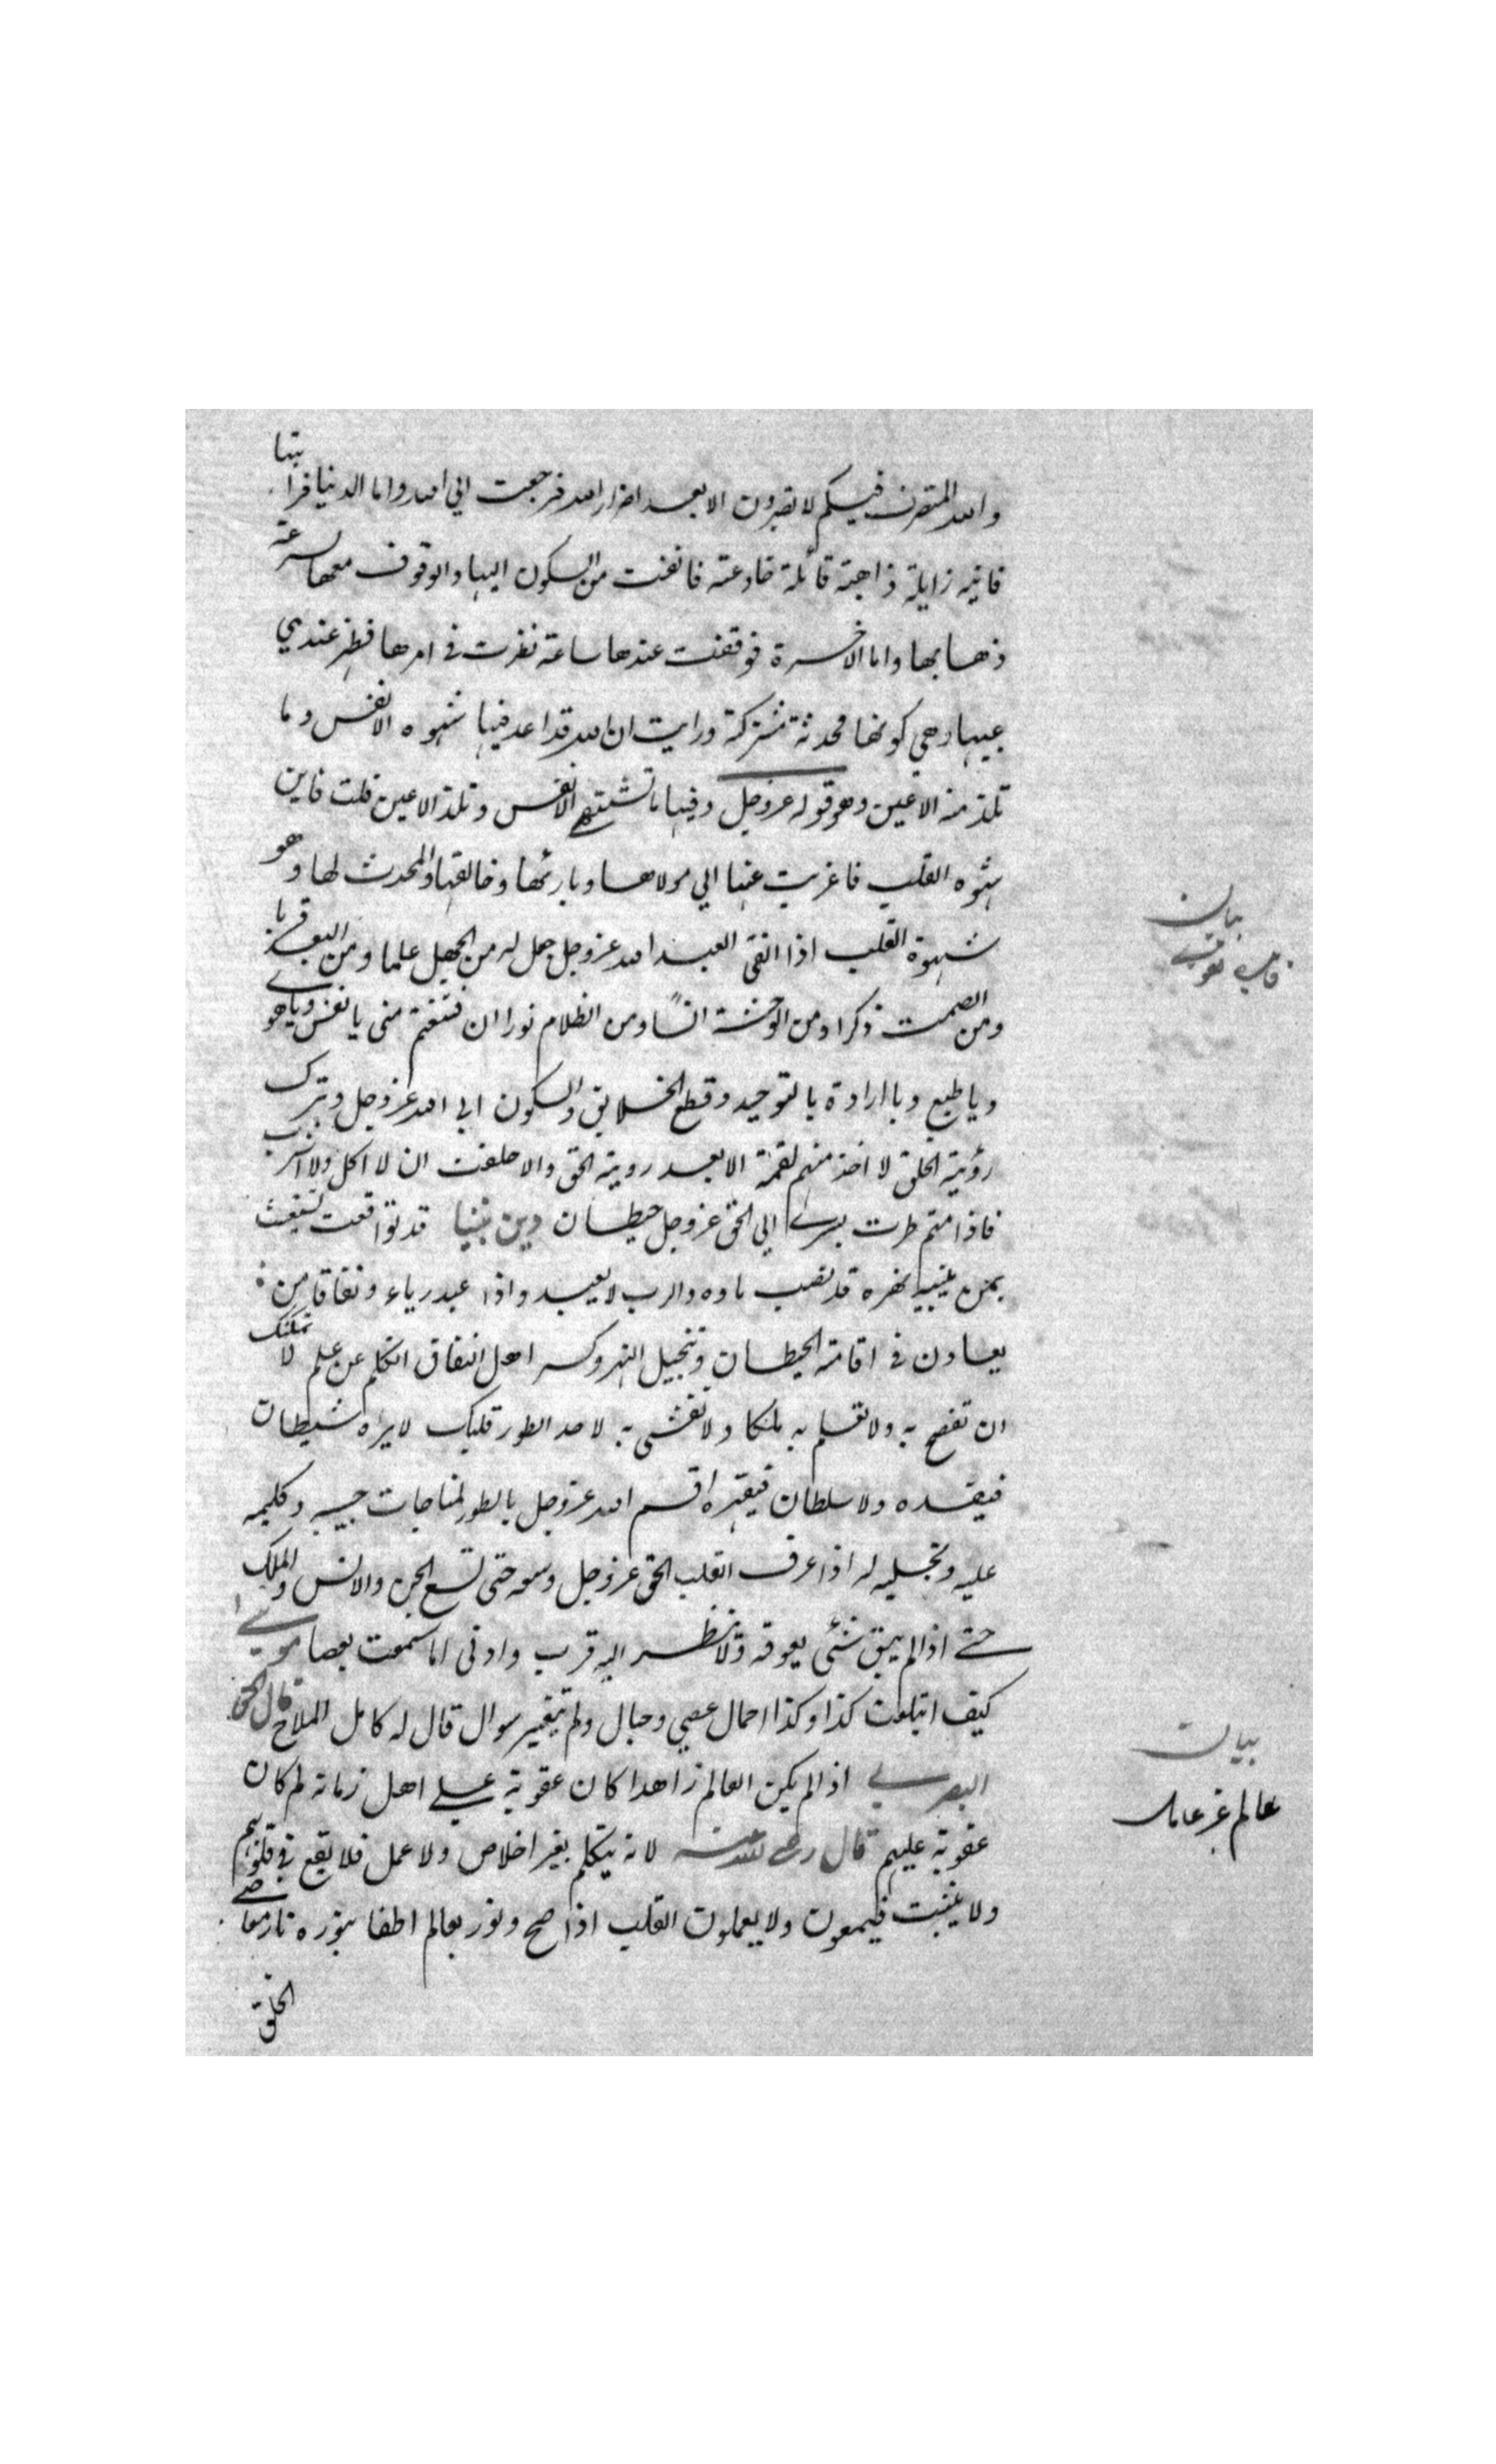 والله المتصرف فيكم لا تضرون الا بعد اضرار الله فرجعت الي الله واما الدنيا فرايتها
فانيه زايلة ذاهبة قاتلة خادعة فانفت من السكون اليها والوقوف معها سرعة
ذهابها واما الاخرة فوقفت عندها ساعة نظرت في امرها فظهر عندي
عيبها وهي كونها محدثة مشتركة ورايت ان الله قد اعد فيها شهوه الانفس وما
تلذ منه الاعين وهو قوله عزوجل وفيها ما تشتهي الانفس وتلذ الاعين قلت فاين
شهوه القلب فاعرضت عنها الي مولاها وبارئها وخالقها والمحدث لها وهو
شهوة القلب اذا اتقى العبد الله عزوجل جعل له من الجهل علما ومن البعد قربا
ومن الصمت ذكرا ومن الوحشة انسا ومن الظلام نورا ان قنعتم منى يا نفس ويا هوي
ويا طبع ويا ارادة بالتوحيد وقطع الخلايق والسكون الي الله عزوجل وترك
رؤية الخلق لا اخذ منهم لقمة الا بعد روية الحق والا حلفت ان لا اكل ولا اشرب
فاذا متم طرت بسري الي الحق عزوجل حيطان دين نبينا قد تواقعت تستغيث
بمن يبنيه نهره قد نضب ماوه والرب لا يعبد واذا عبد رياء ونفاقا من
يعاون في اقامة الحيطان وتنجيل النهر وكسر اهل النفاق اتكلم عن علم لا يمكنك
ان تفصح به ولا تعلم به ملكا ولا تفشى به لاحد الطور قلبك لا يراه شيطان
فيفسده ولا سلطان فيقهره اقسم الله عزوجل بالطور لمناجات حبيبه وكليمه
عليه وتجليه له اذا عرف القلب الحق عزوجل وسعه حتى تسع الجن والانس والملك
حتى اذا لم يبق شئى يعوقه ولا نظر اليه قرب وادنى اما سمعت بعصا موسى
كيف ابتلعت كذا وكذا احمال عصي وحبال ولم تتغير سوال قال له كامل الملاح قال الحسن
البصري اذا لم يكن العالم زاهدا كان عقوبة على اهل زمانه لم كان
عقوبة عليهم قال رضي الله عنه لانه يتكلم بغير اخلاص ولا عمل فلا يقع في قلوبهم
ولا يثبت فيسمعون ولا يعملون القلب اذا صح ونور بعالم اطفا بنوره نار معاصي
الخلق
بيان
بيان
عالم غير عامل